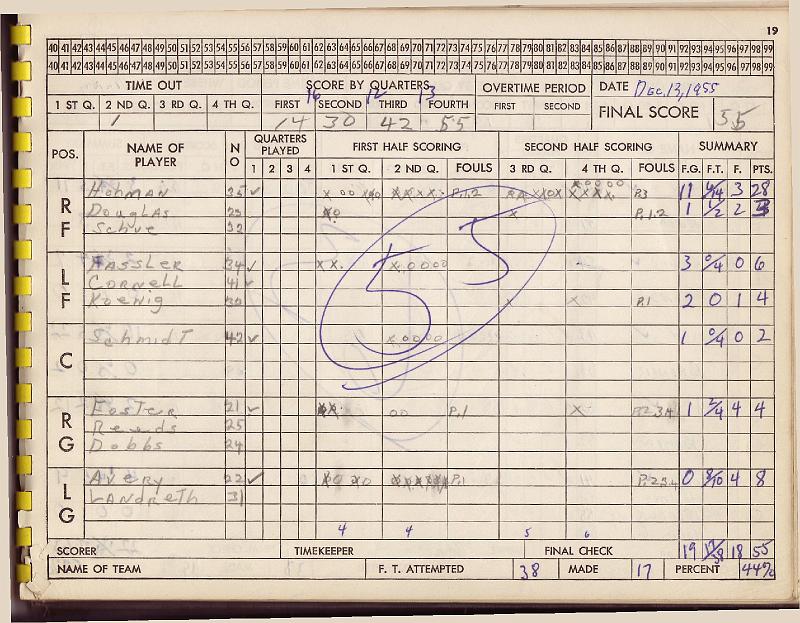 19
40 41 42 43 44 45 46 47 48 49 50 51 52 53 54 55 56 57 58 59 60 61 62 63 64 65 66 67 68 69 70 71 72 73 74 75 76 77 78 79 80 81 82 83 84 85 86 87 88 89 90 91 92 93 94 95 96 97 98 99
40 41 42 43 44 45 46 47 48 49 50 51 52 53 54 55 56 57 58 59 60 61 62 63 64 65 66 67 68 69 70 71 72 73 74 75 76 77 78 79 80 81 82 83 84 85 86 87 88 89 90 91 92 93 94 95 96 97 98 99
TIME OUT SCORE BY QUARTERS OVERTIME PERIOD DATE Dec. 13, 1955
1 ST Q. 2 ND Q. 3 RD Q. 4 TH Q. FIRST 16 SECOND 12 THIRD 13 FOURTH FIRST SECOND FINAL SCORE 55
1 14 30 42 55
POS. NAME OF PLAYER NO QUARTERS PLAYED FIRST HALF SCORING SECOND HALF SCORING SUMMARY
1 2 3 4 1 ST Q. 2 ND Q. FOULS 3 RD Q. 4 TH Q. FOULS F.G. F.T. F. PTS.
RF Hohman 35 ✓ P.1.2 P.3 11 6/14 3 28
Douglas P.1.2 1 1/2 2 3
Schue 32
LF Hassler 34 ✓ x x x.0000 3 0/4 0 6
Cornell 41 ✓
Koenig 30 x x P.1 2 0 1 4
C Schmidt 42 ✓ x.0000 1 0/4 0 2
RG Foster 21 ✓ 00 P.1 x P.2.3.4 1 2/4 4 4
25
Dobbs 24
LG Avery 22 ✓ P.1 P.2.3.4 0 8/10 4 8
Landreth 31
4 4 5 6
SCORER TIMEKEEPER FINAL CHECK 19 17/38 18 55
NAME OF TEAM F. T. ATTEMPTED 38 MADE 17 PERCENT 44%
55